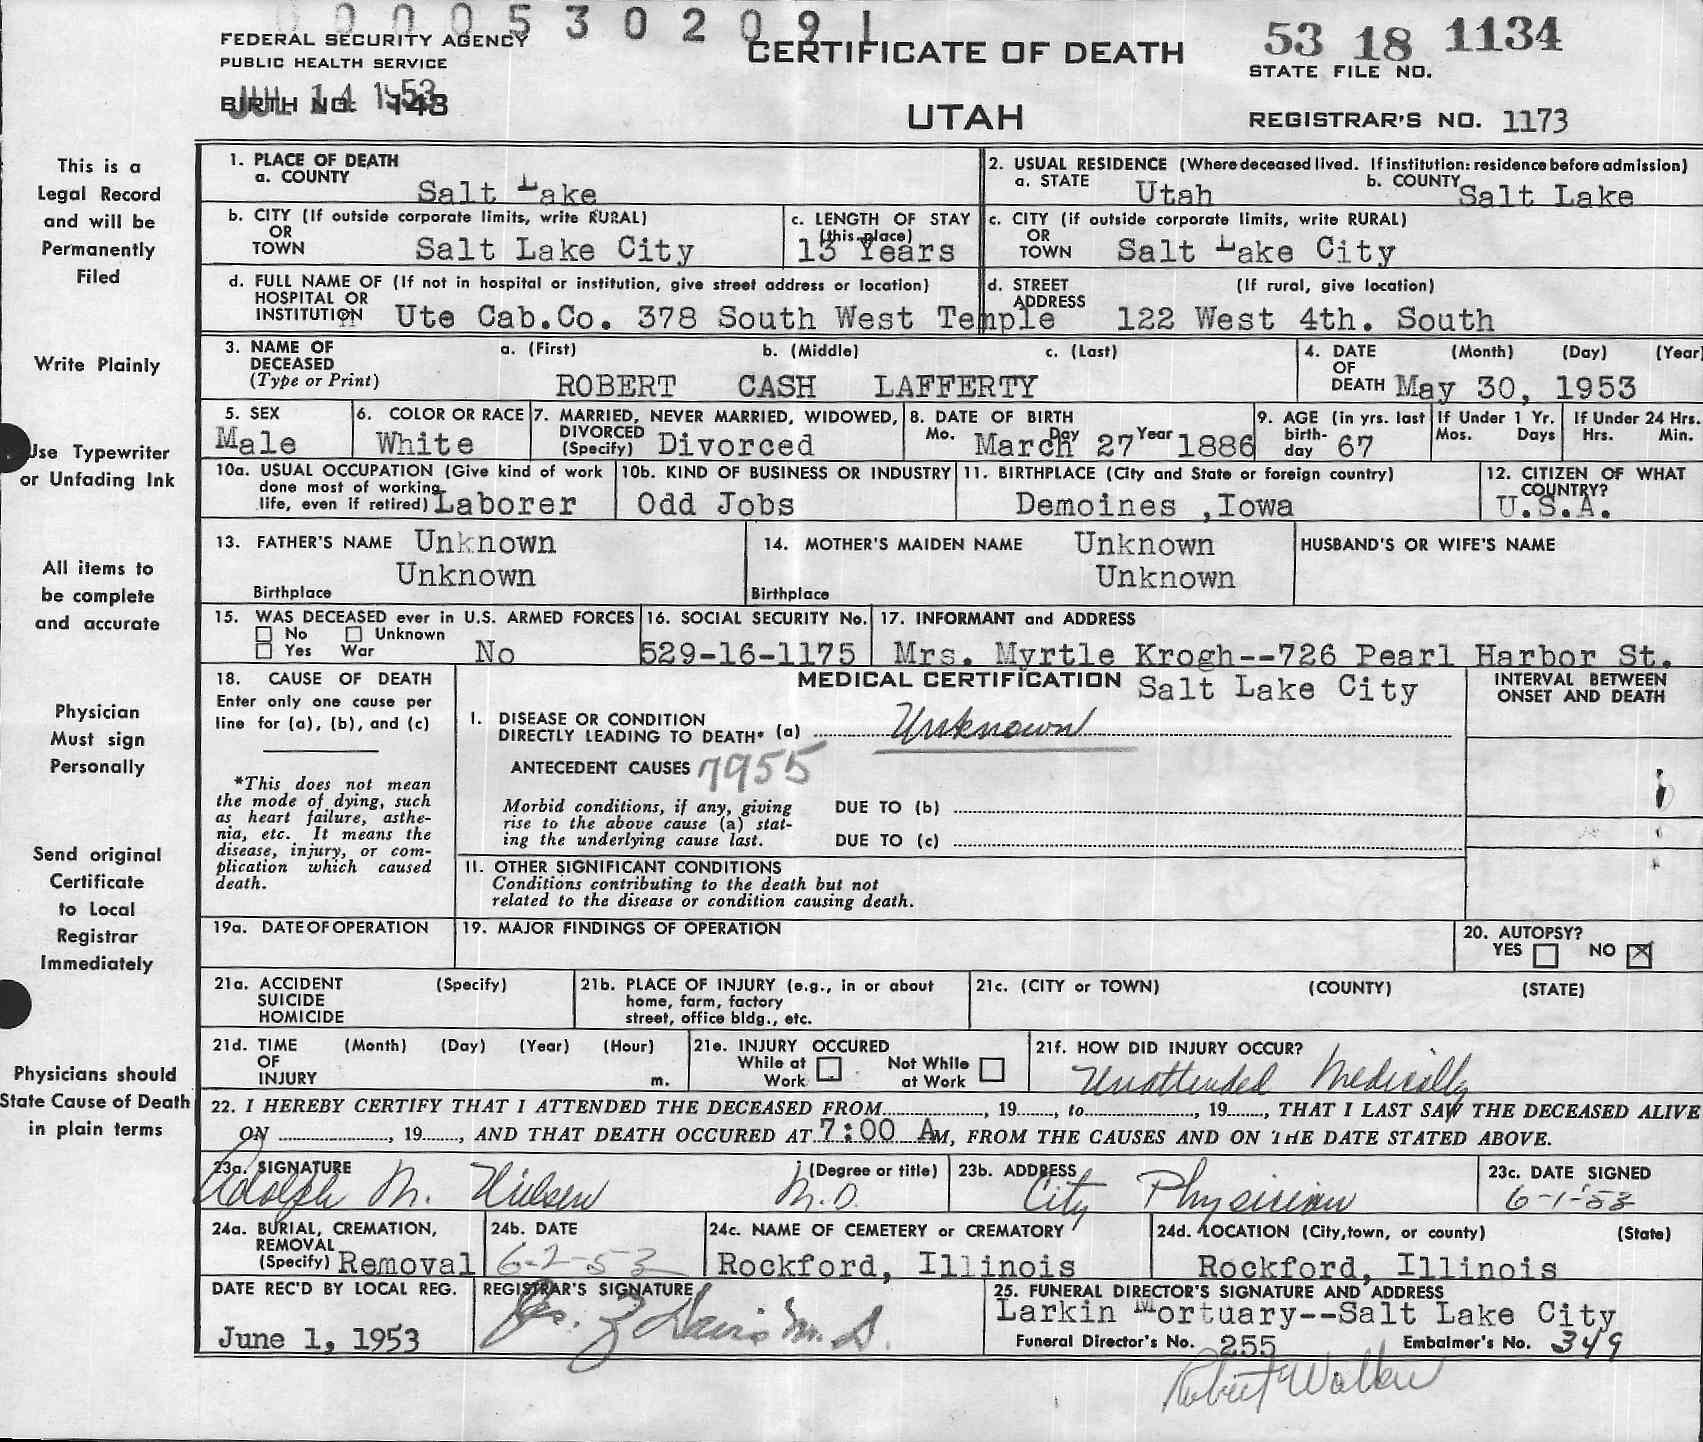 0000530209 1
FEDERAL SECURITY AGENCY
PUBLIC HEALTH SERVICE
CERTIFICATE OF DEATH
53 18 1134
STATE FILE NO.
BIRTH NO. 143
JUL 14 1953
UTAH
REGISTRAR'S NO. 1173
This is a
Legal Record
and will be
Permanently
Filed
Write Plainly
Use Typewriter
or Unfading Ink
All items to
be complete
and accurate
Physician
Must sign
Personally
Send original
Certificate
to Local
Registrar
Immediately
Physicians should
State Cause of Death
in plain terms
1. PLACE OF DEATH
a. COUNTY Salt Lake
2. USUAL RESIDENCE (Where deceased lived. If institution: residence before admission)
a. STATE Utah b. COUNTY Salt Lake
b. CITY (If outside corporate limits, write RURAL)
OR
TOWN Salt Lake City
c. LENGTH OF STAY
(this place)
13 Years
c. CITY (if outside corporate limits, write RURAL)
OR
TOWN Salt Lake City
d. FULL NAME OF (If not in hospital or institution, give street address or location)
HOSPITAL OR
INSTITUTION Ute Cab.Co. 378 South West Temple
d. STREET (If rural, give location)
ADDRESS
122 West 4th. South
3. NAME OF a. (First) b. (Middle) c. (Last)
DECEASED
(Type or Print) ROBERT CASH LAFFERTY
4. DATE (Month) (Day) (Year)
OF
DEATH May 30, 1953
5. SEX
Male
6. COLOR OR RACE
White
7. MARRIED, NEVER MARRIED, WIDOWED,
DIVORCED
(Specify) Divorced
8. DATE OF BIRTH
Mo. Day Year
March 27 1886
9. AGE (in yrs. last
birth-
day 67
If Under 1 Yr.
Mos. Days
If Under 24 Hrs.
Hrs. Min.
10a. USUAL OCCUPATION (Give kind of work
done most of working
life, even if retired) Laborer
10b. KIND OF BUSINESS OR INDUSTRY
Odd Jobs
11. BIRTHPLACE (City and State or foreign country)
Demoines ,Iowa
12. CITIZEN OF WHAT
COUNTRY?
U.S.A.
13. FATHER'S NAME Unknown
Unknown
Birthplace
14. MOTHER'S MAIDEN NAME Unknown
Unknown
Birthplace
HUSBAND'S OR WIFE'S NAME
15. WAS DECEASED ever in U.S. ARMED FORCES
No Unknown
Yes War No
16. SOCIAL SECURITY No.
529-16-1175
17. INFORMANT and ADDRESS
Mrs. Myrtle Krogh--726 Pearl Harbor St.
Salt Lake City
18. CAUSE OF DEATH
Enter only one cause per
line for (a), (b), and (c)
*This does not mean
the mode of dying, such
as heart failure, asthe-
nia, etc. It means the
disease, injury, or com-
plication which caused
death.
MEDICAL CERTIFICATION
INTERVAL BETWEEN
ONSET AND DEATH
I. DISEASE OR CONDITION
DIRECTLY LEADING TO DEATH* (a) Unknown
ANTECEDENT CAUSES 7955
Morbid conditions, if any, giving
rise to the above cause (a) stat-
ing the underlying cause last.
DUE TO (b)
DUE TO (c)
II. OTHER SIGNIFICANT CONDITIONS
Conditions contributing to the death but not
related to the disease or condition causing death.
19a. DATE OF OPERATION
19. MAJOR FINDINGS OF OPERATION
20. AUTOPSY?
YES NO X
21a. ACCIDENT (Specify)
SUICIDE
HOMICIDE
21b. PLACE OF INJURY (e.g., in or about
home, farm, factory
street, office bldg., etc.
21c. (CITY or TOWN) (COUNTY) (STATE)
21d. TIME (Month) (Day) (Year) (Hour)
OF
INJURY m.
21e. INJURY OCCURED
While at Work Not While at Work
21f. HOW DID INJURY OCCUR?
Unattended Medically
22. I HEREBY CERTIFY THAT I ATTENDED THE DECEASED FROM, 19, to, 19, THAT I LAST SAW THE DECEASED ALIVE
ON, 19, AND THAT DEATH OCCURED AT 7:00 AM, FROM THE CAUSES AND ON THE DATE STATED ABOVE.
23a. SIGNATURE (Degree or title)
Adolph M. Nielsen M.D.
23b. ADDRESS
City Physician
23c. DATE SIGNED
6-1-53
24a. BURIAL, CREMATION,
REMOVAL
(Specify) Removal
24b. DATE
6-2-53
24c. NAME OF CEMETERY or CREMATORY
Rockford, Illinois
24d. LOCATION (City, town, or county) (State)
Rockford, Illinois
DATE REC'D BY LOCAL REG.
June 1, 1953
REGISTRAR'S SIGNATURE
Davis M.D.
25. FUNERAL DIRECTOR'S SIGNATURE AND ADDRESS
Larkin Mortuary--Salt Lake City
Funeral Director's No. 255 Embalmer's No. 349
Robert Walker